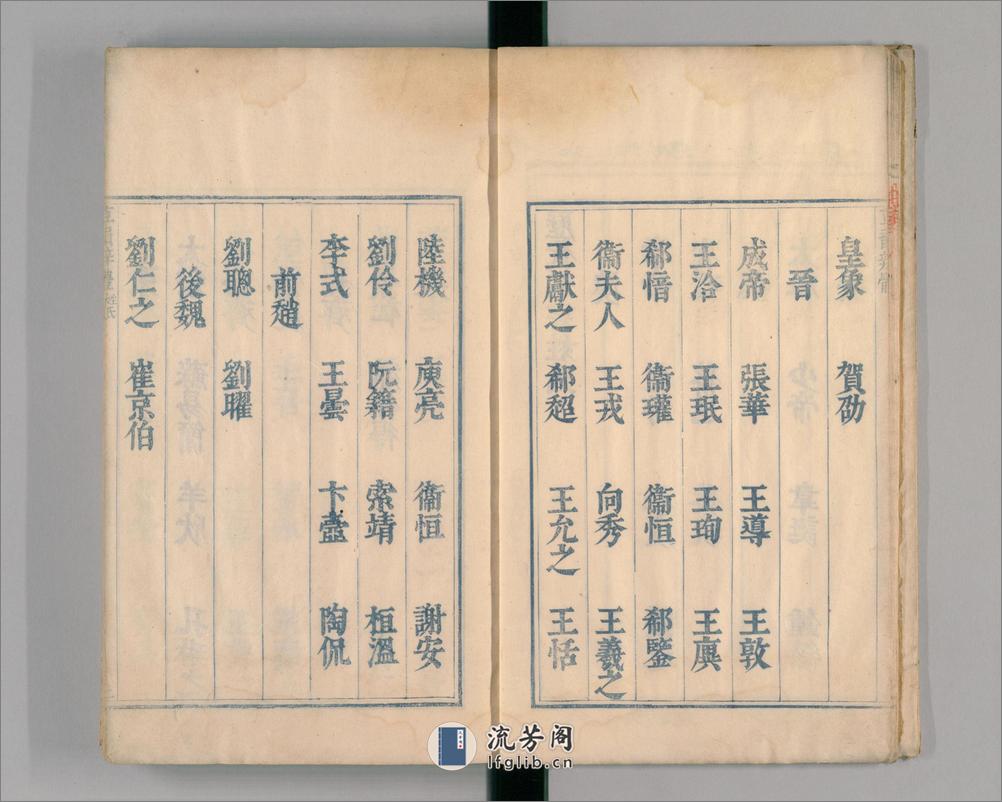 皇象 賀劭
晉
成帝 張華 王導 王敦
王洽 王珉 王珣 王廙
郗愔 衞瓘 衞恒 郗鑒
衞夫人 王戎 向秀 王羲之
王獻之 郗超 王允之 王恬
陸機 庾亮 衞恒 謝安
劉伶 阮籍 索靖 桓溫
李式 王曇 卞壼 陶侃
前趙
劉聰 劉曜
後魏
劉仁之 崔京伯
流芳阁
lfglib.cn